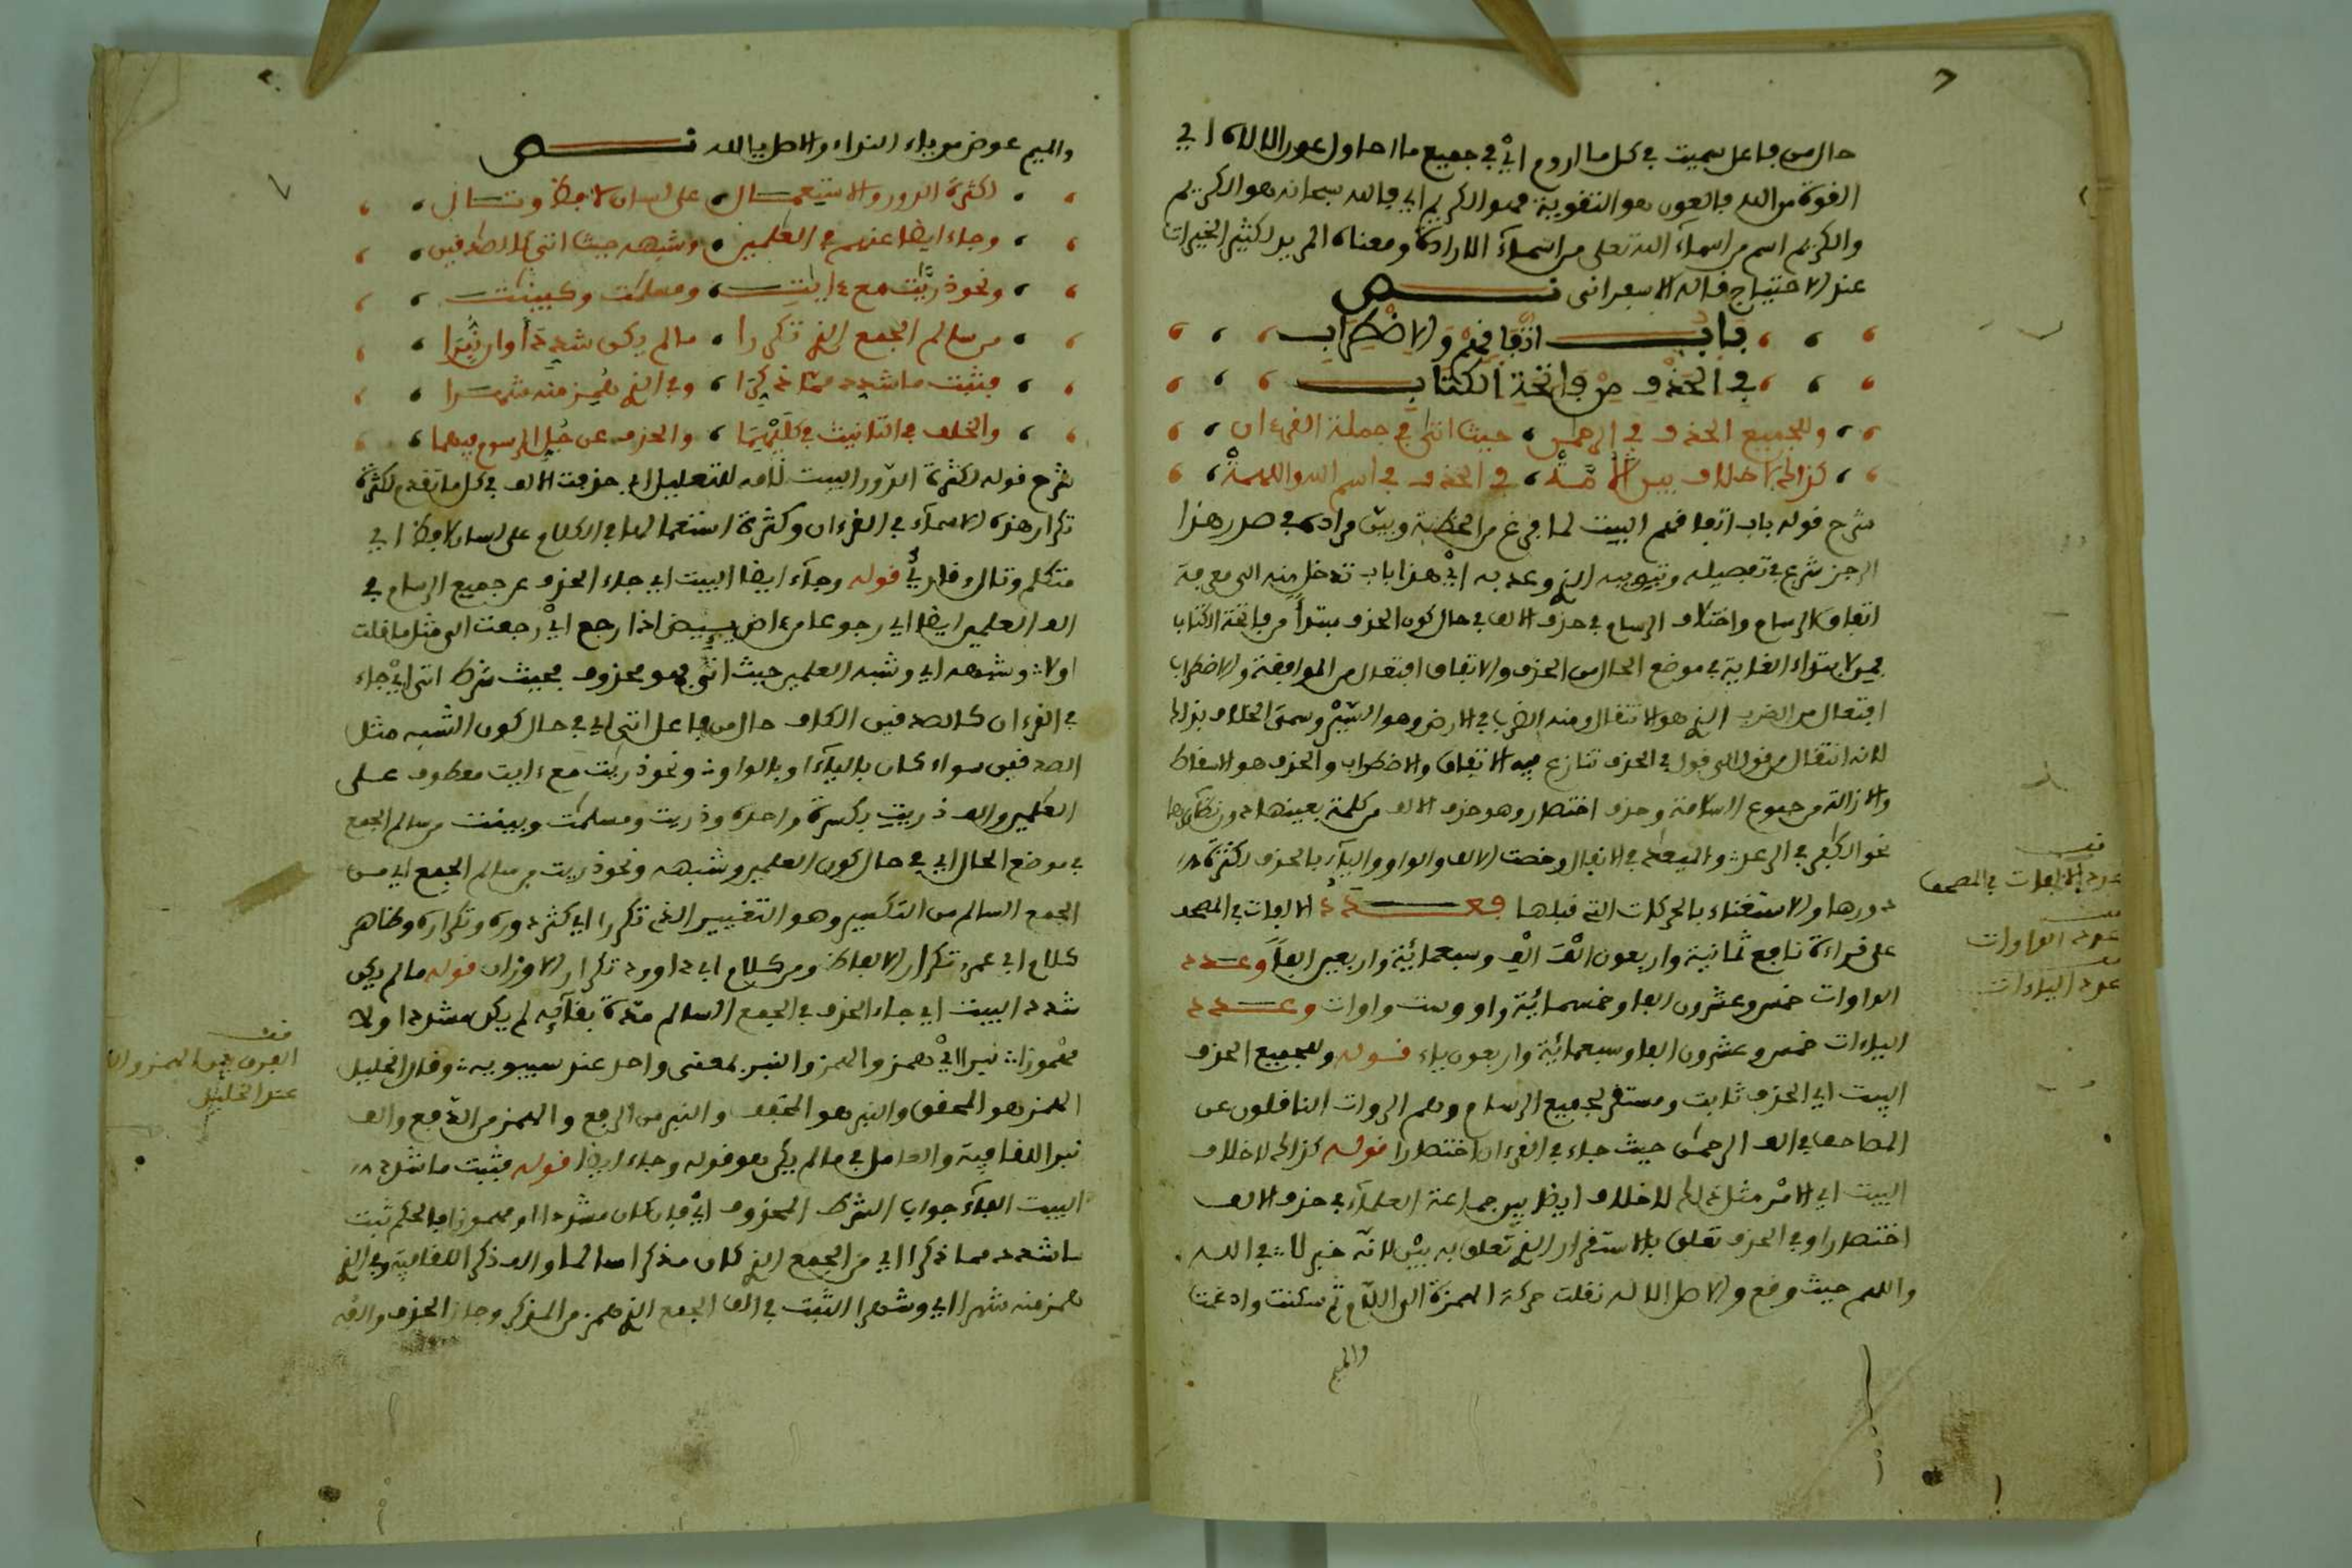 حال من فاعل سميت في كل ما اروم اي في جميع ما احاول عون الاله اي
القوة من الله فالعون هو التقوية فهو الكريم اي فالله سبحانه هو الكريم
والكريم اسم من اسماء الله تعلى من اسماء الارادة ومعناه المريد لكثير الخيرات
عند الاحتياج قاله الاسفرانى نص
باب اتفاقهم والاضطراب
في الحذف من فاتحة الكتاب
وللجميع الحذف في الرحمن حيث اتى في جملة القرءان
كذاك لا خلاف بين الامة في الحذف في اسم الله واللهمة
شرح قوله باب اتفاقهم البيت لما فرغ من الخطبة وبين مراده في صدر هذا
الرجز شرع في تفصيله وتبويبه الذي وعد به اي هذا باب تدخل منه الى معرفة
اتفاق الرسام واختلاف الرسام في حذف الالف في حال كون الحذف مبتدأ من فاتحة الكتاب
فمن لابتداء الغاية في موضع الحال من الحذف والاتفاق افتعال من الموافقة والاضطراب
افتعال من الضرب الذي هو الانتقال ومنه الضرب في الارض وهو السير وسمى الخلاف بذلك
لانه انتقال من قول الى قول في الحذف تنازع فيه الاتفاق والاضطراب والحذف هو الاسقاط
والازالة من جموع السلامة وحذف اختصار وهو حذف الالف من كلمة بعينها دون نظائرها
نحو الكفر في الرعد والميعد في الانفال وخصت الالف والواو والياء بالحذف لكثرة
دورها والاستغناء بالحركات التي قبلها فعدد الالفات في المصحف
على قراءة نافع ثمانية واربعون الف الف وسبعمائية واربعين الفا وعدد
الواوات خمس وعشرون الفا وخمسمائية واو وست واوات وعدد
الياءات خمس وعشرون الفا وسبعمائية واربعون ياء قوله وللجميع الحذف
البيت اي الحذف ثابت ومستقر لجميع الرسام وهم الروات الناقلون عن
المصاحف في الف الرحمن حيث جاء في القرءان اختصارا قوله كذاك لا خلاف
البيت اي الامر مثل ذلك لا خلاف ايضا بين جماعة العلماء في حذف الالف
اختصارا وفي الحذف تعلق بالاستقرار الذي تعلق به بين لانه خبر لا في الله
واللهم حيث وقع والاصل الاله نقلت حركة الهمزة الى اللام ثم سكنت وادغمت
والميم
قف
عدد الالفات في المصحف
قف
عدد الواوات
قف
عدد الياءات
والميم عوض من ياء النداء والاصل يا الله نص
لكثرة الدور والاستعمال على لسان لافظ وتال
وجاء ايضا عنهم في العلمين وشبهه حيث اتى كالصدقين
ونحو ذريت مع ءايت ومسلمت وكبينت
من سالم الجمع الذي تكررا ما لم يكن شدد أو ان نبرا
فثبت ما شدد مما ذكرا وفي الذي همز منه شهرا
والخلف في التانيث في كليهما والحذف عن جل الرسوم فيهما
شرح قوله لكثرة الدور البيت لامه للتعليل اي حذفت الالف في كل ما تقدم لكثرة
تكرار هذه الاسماء في القرءان وكثرة استعمالها في الكلام على لسان لافظ اي
متكلم وتال قارئ قوله وجاء ايضا البيت اي جاء الحذف عن جميع الرسام في
الف العلمين ايضا اي رجوعا من ءاض يئيض اذا رجع اي رجعت الى مثل ما قلت
اولا وشبهه اي وشبه العلمين حيث اتى فهو محذوف فحيث شرط اتى اي جاء
في القرءان كالصدقين الكاف حال من فاعل اتى اي في حال كون الشبه مثل
الصدقين سواء كان بالياء او بالواو ونحو ذريت مع ءايت معطوف على
العلمين والف ذريت بكسرة واحدة وذريت ومسلمت وبينت من سالم الجمع
في موضع الحال اي في حال كون العلمين وشبهه ونحو ذريت من سالم الجمع اي من
الجمع السالم من التكسير وهو التغيير الذي تكررا اي كثر دوره وتكراره وظاهر
كلام ابي عمرو تكرار الالفاظ ومن كلام ابي داوود تكرار الاوزان قوله ما لم يكن
شدد البيت اي جاء الحذف في الجمع السالم مدة بقائه لم يكن مشددا ولا
مهموزا نبرا اي همز والهمز والنبر بمعنى واحد عند سيبويه وقال الخليل
الهمز هو المحقق والنبر هو المخفف والنبر من الرفع والهمز من الدفع والف
نبرا للقافية والعامل في ما لم يكن هو قوله وجاء ايضا قوله فثبت ما شدد
البيت الفاء جواب الشرط المحذوف اي فان كان مشددا او مهموزا فالحكم ثبت
ما شدد مما ذكرا اي من الجمع الذي كان مذكرا سالما والف ذكرا للقافية وفي الذي
همز منه شهرا اي وشهر الثبت في الف الجمع الذي همز من المذكر وجاز الحذف والفه
قف
الفرق بين الهمز والنبر
عند الخليل